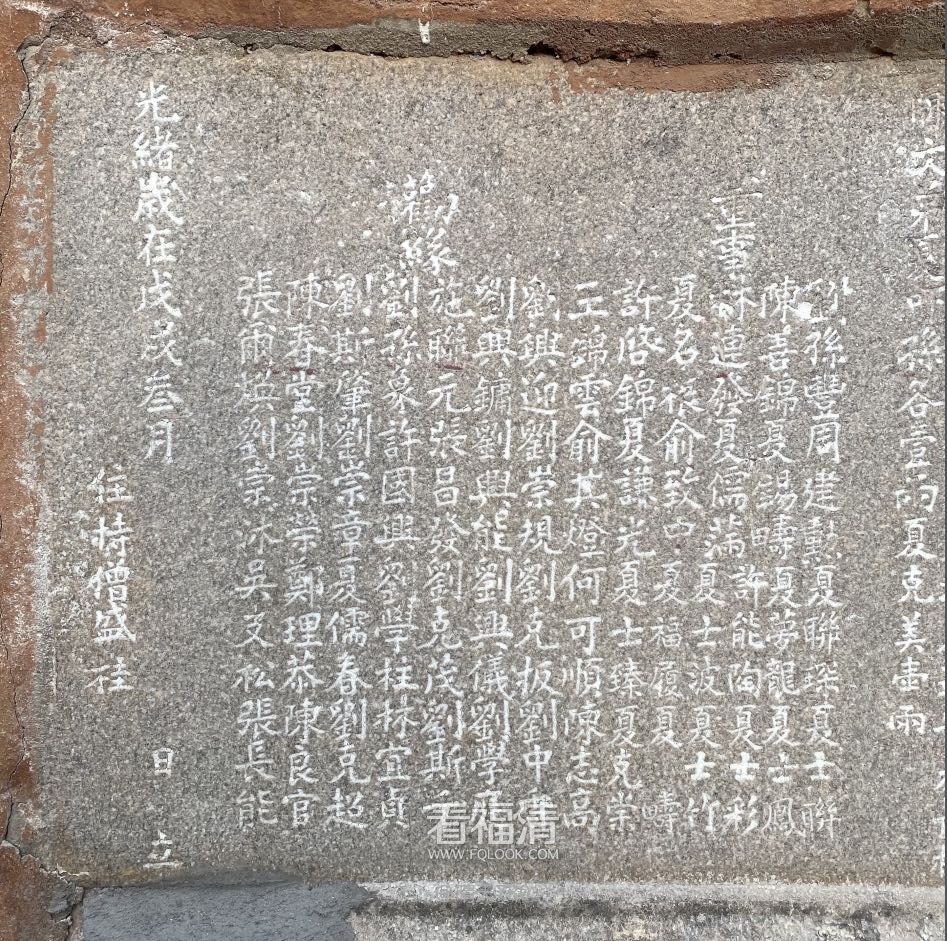 孫各壹兩夏克美壹兩
董事
孫豐周建勲夏聯琛夏士聯
陳喜錦夏錫疇夏夢龍夏士鳳
林連發夏儒滿許能陶夏士彩
夏名振俞致中夏福履夏士竹
許啓錦夏謙光夏士臻夏克棠疇
王錦雲俞其燈何可順陳志高
勸緣
劉興迎劉崇規劉克振劉中
劉興鏞劉興能劉興儀劉學
施聯元張昌發劉克茂劉斯
劉孫泉許國興劉學柱林宜貞
劉斯肇劉崇章夏儒春劉克超
陳春堂劉崇榮鄭理恭陳良官
張爾英劉崇冰吳支松張長能
光緒歲在戊戌叁月 日 立
住持僧盛桂
看福清
WWW.FQLOOK.COM